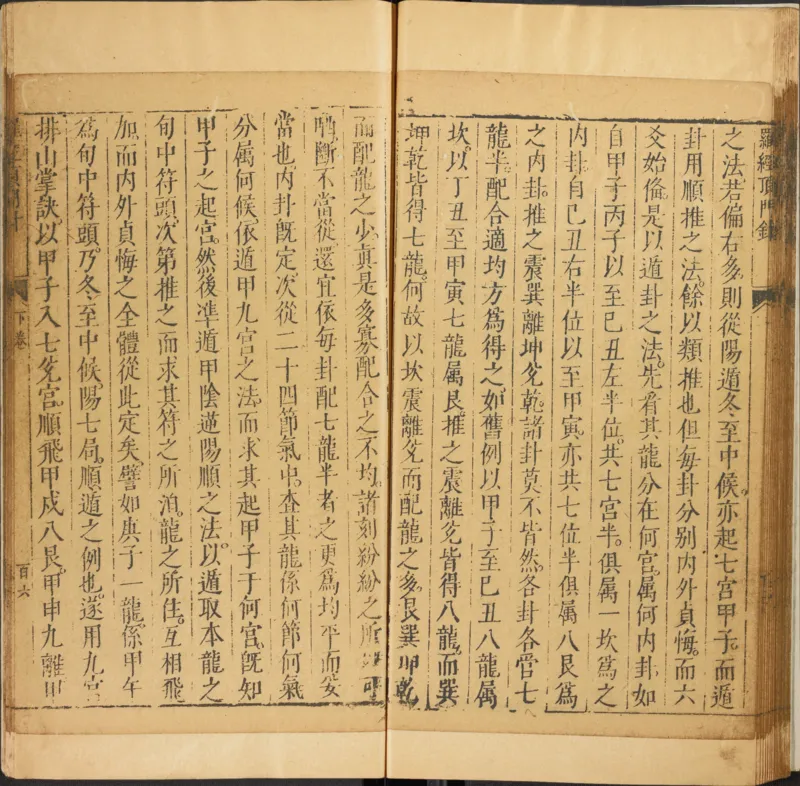 羅經頂門針
之法若偏右多則從陽遁冬至中候亦起七宮甲子。而遁
卦用順推之法。餘以類推也但每卦分別內外貞悔。而六
爻始俻。是以遁卦之法。先看其龍分在何宮。屬何內卦如
自甲子丙子以至己丑左半位。共七宮半。俱屬一坎為之
內卦。自己丑右半位以至甲寅。亦共七位半俱屬八艮為
之內卦。推之震巽離坤兌乾。諸卦莫不皆然。各卦各管七
龍半。配合適均方為得之。如舊例以甲子至己丑八龍屬
坎。以丁丑至甲寅七龍属艮。推之震離兌皆得八龍。而巽
坤乾皆得七龍。何故以坎震離兌而配龍之多。艮巽坤乾
而配龍之少。真是多寡配合之不均。諸刻紛紛之所
斷不當從。還宜依每卦配七龍半者之更為均平而妥
當也。內卦既定。次從二十四節氣中。查其龍係何節何氣
分属何候。依遁甲九宮之法。而求其起甲子于何宮。既知
甲子之起宮。然後凖遁甲陰逆陽順之法。以遁取本龍之
旬中符頭。次第推之而求其符之所泊。龍之所住。互相飛
加而內外貞悔之全體從此定矣。譬如庚子一龍。係甲午
為旬中符頭。乃冬至中候。陽七局。順遁之例也。遂用九宮
排山掌訣。以甲子入七兌宮。順飛甲戌八艮。甲申九離甲
下卷
百六